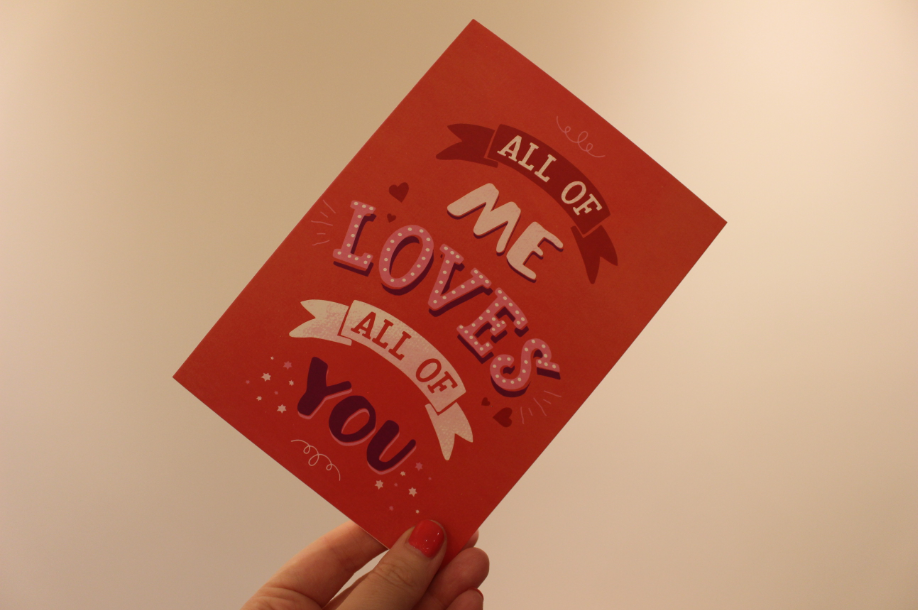 ALL OF
ME
LOVES
ALL OF
YOU